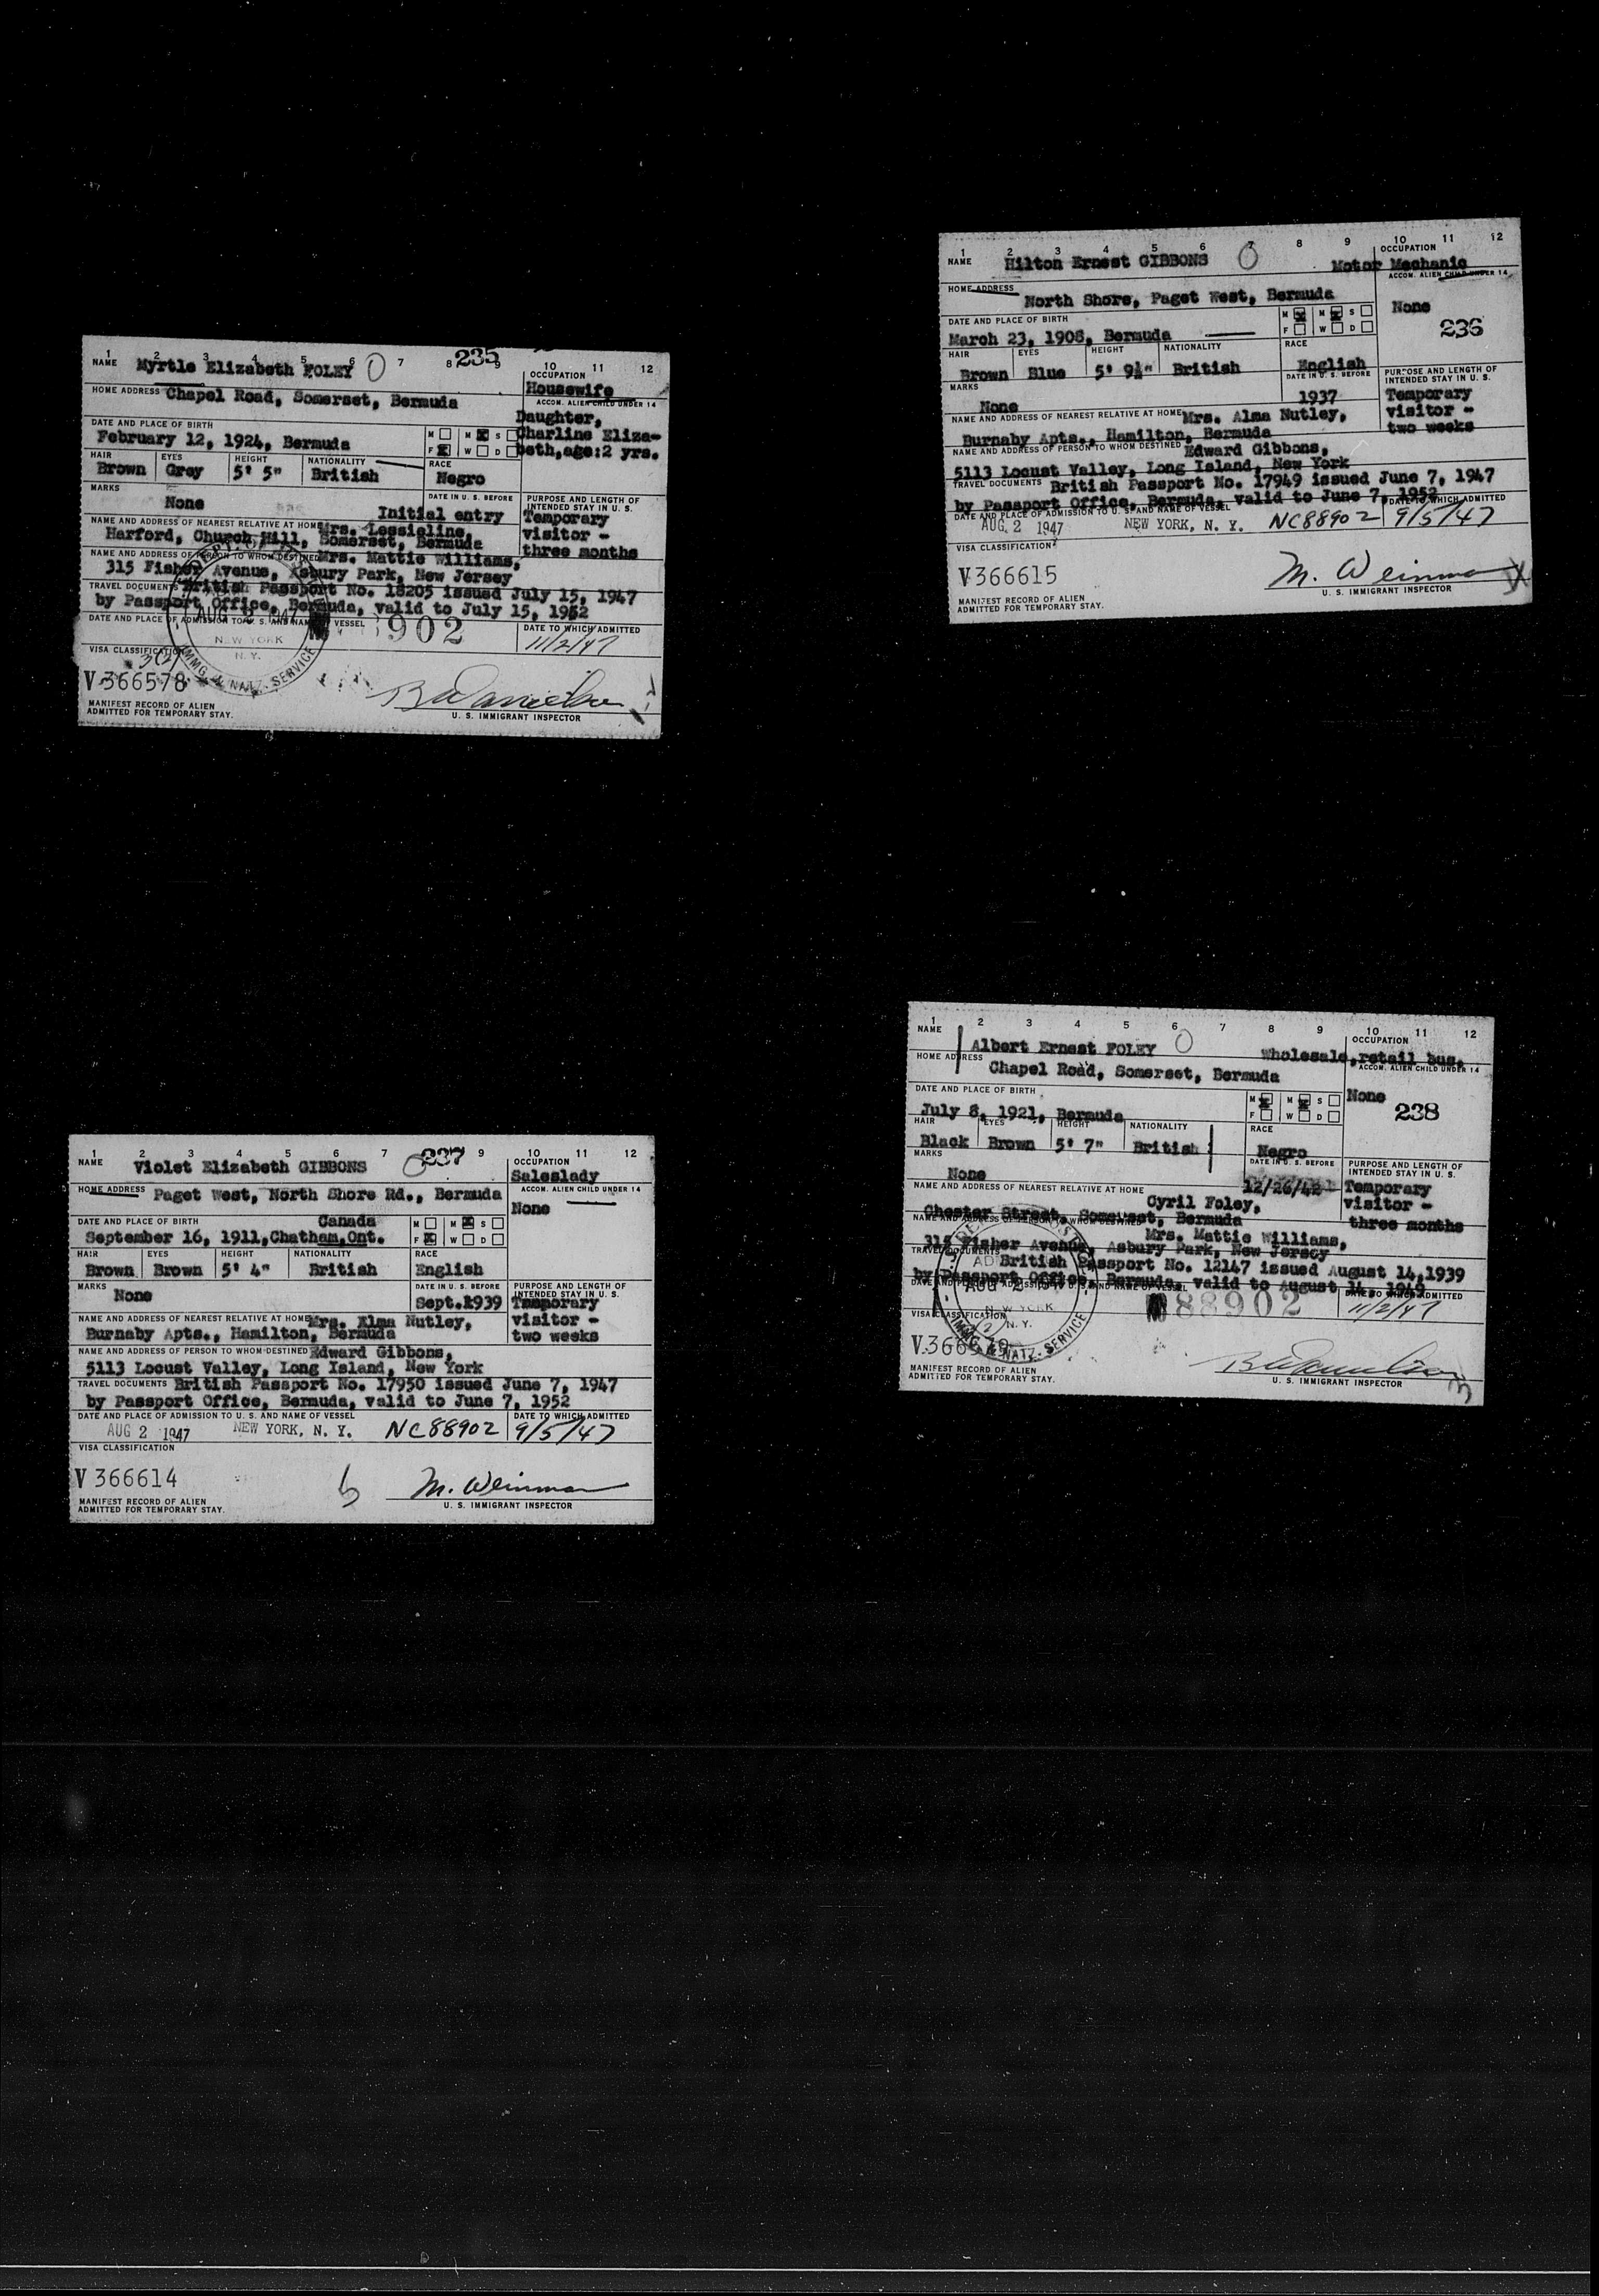 1 2 3 4 5 6 7 8 235 9 10 11 12
NAME Myrtle Elizabeth FOLEY
OCCUPATION
Housewife
HOME ADDRESS Chapel Road, Somerset, Bermuda
ACCOM. ALIEN CHILD UNDER 14
Daughter,
Charline Eliza-
beth, age: 2 yrs.
DATE AND PLACE OF BIRTH
February 12, 1924, Bermuda
M M X S
F X W D
HAIR EYES HEIGHT NATIONALITY RACE
Brown Grey 5' 5" British Negro
MARKS DATE IN U. S. BEFORE PURPOSE AND LENGTH OF INTENDED STAY IN U. S.
None Initial entry Temporary
visitor -
three months
NAME AND ADDRESS OF NEAREST RELATIVE AT HOME Mrs. Lessieline
Harford, Church Hill, Somerset, Bermuda
NAME AND ADDRESS OF PERSON TO WHOM DESTINED Mrs. Mattie Williams,
315 Fisher Avenue, Asbury Park, New Jersey
TRAVEL DOCUMENTS British Passport No. 18205 issued July 15, 1947
by Passport Office, Bermuda, valid to July 15, 1952
DATE AND PLACE OF ADMISSION TO U. S. AND NAME OF VESSEL 902
DATE TO WHICH ADMITTED
11/2/47
NEW YORK
N. Y.
IMMG. & NATZ. SERVICE
VISA CLASSIFICATION
3(2)
V 366578
MANIFEST RECORD OF ALIEN
ADMITTED FOR TEMPORARY STAY.
U. S. IMMIGRANT INSPECTOR
1 2 3 4 5 6 7 8 9 10 11 12
NAME Hilton Ernest GIBBONS
OCCUPATION
Motor Mechanic
HOME ADDRESS
North Shore, Paget West, Bermuda
ACCOM. ALIEN CHILD UNDER 14
None
236
DATE AND PLACE OF BIRTH
March 23, 1908, Bermuda
M X M X S
F W D
HAIR EYES HEIGHT NATIONALITY RACE
Brown Blue 5' 9½" British English
MARKS DATE IN U. S. BEFORE PURPOSE AND LENGTH OF INTENDED STAY IN U. S.
None 1937 Temporary
visitor -
two weeks
NAME AND ADDRESS OF NEAREST RELATIVE AT HOME Mrs. Alma Nutley,
Burnaby Apts., Hamilton, Bermuda
NAME AND ADDRESS OF PERSON TO WHOM DESTINED Edward Gibbons,
5113 Locust Valley, Long Island, New York
TRAVEL DOCUMENTS British Passport No. 17949 issued June 7, 1947
by Passport Office, Bermuda, valid to June 7, 1952
DATE AND PLACE OF ADMISSION TO U. S. AND NAME OF VESSEL DATE TO WHICH ADMITTED
AUG 2 1947 NEW YORK, N. Y. NC88902 9/5/47
VISA CLASSIFICATION
V 366615
M. Weinman
MANIFEST RECORD OF ALIEN
ADMITTED FOR TEMPORARY STAY.
U. S. IMMIGRANT INSPECTOR
1 2 3 4 5 6 7 237 9 10 11 12
NAME Violet Elizabeth GIBBONS
OCCUPATION
Saleslady
HOME ADDRESS Paget West, North Shore Rd., Bermuda
ACCOM. ALIEN CHILD UNDER 14
None
DATE AND PLACE OF BIRTH Canada
September 16, 1911, Chatham, Ont.
M M X S
F X W D
HAIR EYES HEIGHT NATIONALITY RACE
Brown Brown 5' 4" British English
MARKS DATE IN U. S. BEFORE PURPOSE AND LENGTH OF INTENDED STAY IN U. S.
None Sept. 1939 Temporary
visitor -
two weeks
NAME AND ADDRESS OF NEAREST RELATIVE AT HOME Mrs. Alma Nutley,
Burnaby Apts., Hamilton, Bermuda
NAME AND ADDRESS OF PERSON TO WHOM DESTINED Edward Gibbons,
5113 Locust Valley, Long Island, New York
TRAVEL DOCUMENTS British Passport No. 17950 issued June 7, 1947
by Passport Office, Bermuda, valid to June 7, 1952
DATE AND PLACE OF ADMISSION TO U. S. AND NAME OF VESSEL DATE TO WHICH ADMITTED
AUG 2 1947 NEW YORK, N. Y. NC88902 9/5/47
VISA CLASSIFICATION
V 366614
M. Weinman
MANIFEST RECORD OF ALIEN
ADMITTED FOR TEMPORARY STAY.
U. S. IMMIGRANT INSPECTOR
1 2 3 4 5 6 7 8 9 10 11 12
NAME Albert Ernest FOLEY
OCCUPATION
Wholesale, retail bus.
HOME ADDRESS
Chapel Road, Somerset, Bermuda
ACCOM. ALIEN CHILD UNDER 14
None
238
DATE AND PLACE OF BIRTH
July 8, 1921, Bermuda
M X M X S
F W D
HAIR EYES HEIGHT NATIONALITY RACE
Black Brown 5' 7" British Negro
MARKS DATE IN U. S. BEFORE PURPOSE AND LENGTH OF INTENDED STAY IN U. S.
None 12/26/42 Temporary
visitor -
three months
NAME AND ADDRESS OF NEAREST RELATIVE AT HOME Cyril Foley,
Chester Street, Somerset, Bermuda
NAME AND ADDRESS OF PERSON TO WHOM DESTINED Mrs. Mattie Williams,
315 Fisher Avenue, Asbury Park, New Jersey
TRAVEL DOCUMENTS British Passport No. 12147 issued August 14, 1939
by Passport Office, Bermuda, valid to August 14, 1949
DATE AND PLACE OF ADMISSION TO U. S. AND NAME OF VESSEL 88902
DATE TO WHICH ADMITTED
11/2/47
AUG 2
NEW YORK
N. Y.
IMMG. & NATZ. SERVICE
VISA CLASSIFICATION
MANIFEST RECORD OF ALIEN
ADMITTED FOR TEMPORARY STAY.
U. S. IMMIGRANT INSPECTOR